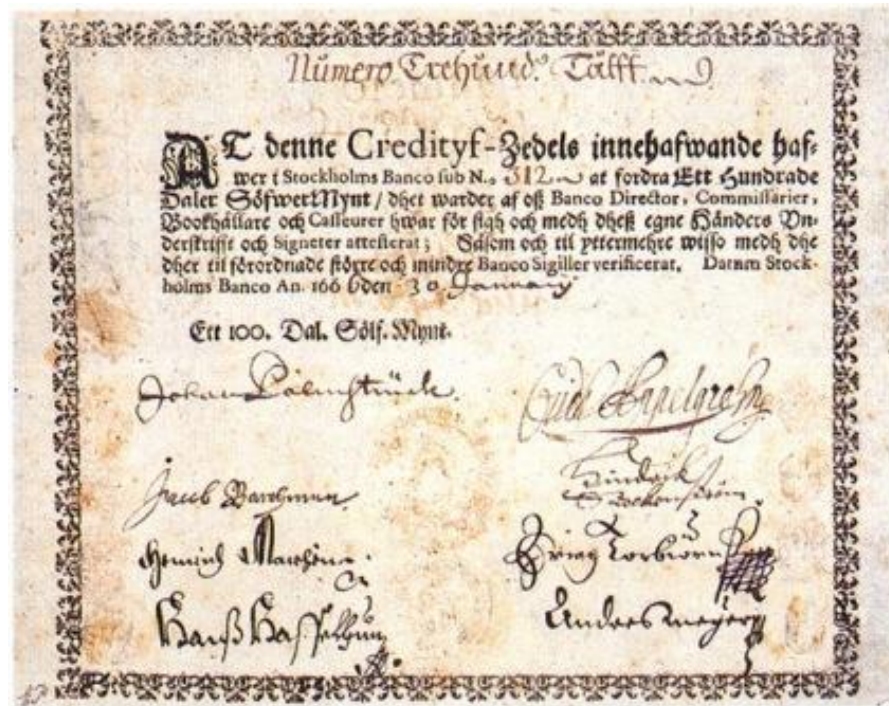 Numero Trehund. Tålff
AT denne Credityf-Zedels innehafwande haf-
wer i Stockholms Banco sub N.o 312 at fordra Ett Hundrade
Daler Söfwer Mynt / dhet warder af oß Banco Director, Commissarier,
Bookhållare och Casseurer hwar för sigh och medh dheß egne Händers Vn-
derskrifft och Signeter attesterat; Såsom och til yttermehre wisso medh dhe
dher til förordnade större och mindre Banco Sigiller verificerat. Datum Stock-
holms Banco An. 1666 den 30 January
Ett 100. Dal. Sölf. Mynt.
Johan Palmstruck
Jacob Barchman
Hindrik
Hanß
Anders Meijer